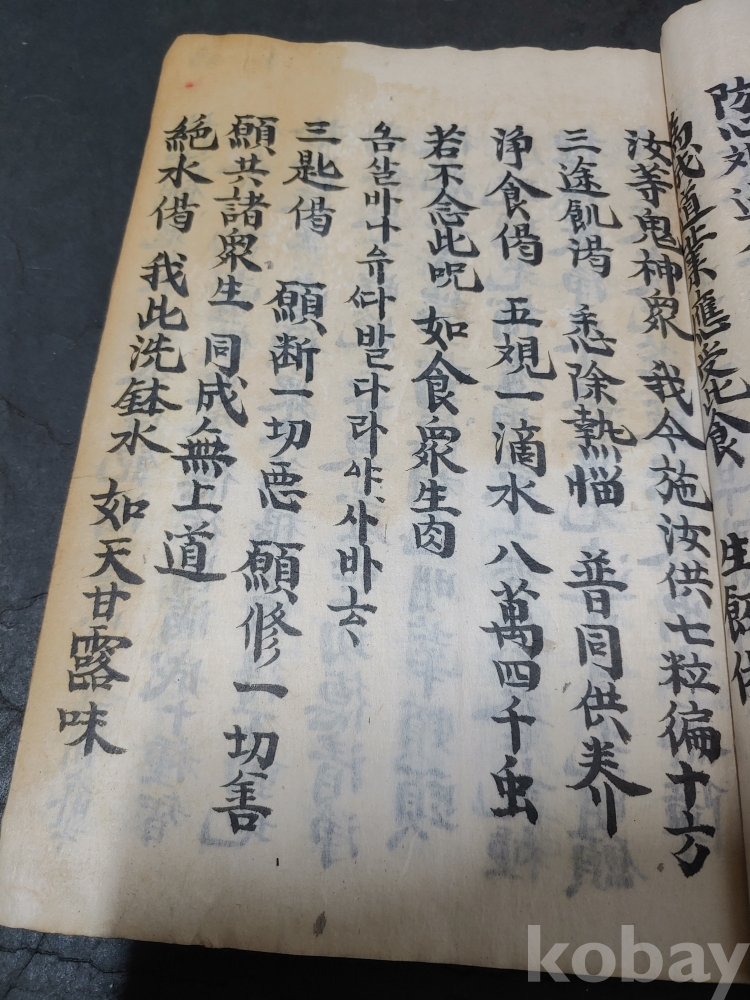 為成道業 應受此食 生飯偈
汝等鬼神衆 我今施汝供 七粒徧十方
三途飢渴 悉除熱惱 普同供養
淨食偈 五觀一滴水 八萬四千虫
若不念此呪 如食衆生肉
옴살바나유타발다라야、사바하、
三匙偈 願断一切惡 願修一切善
願共諸衆生 同成無上道
絶水偈 我此洗鉢水 如天甘露味
kobay